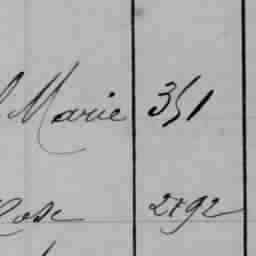 Marie 351
Rose 2892